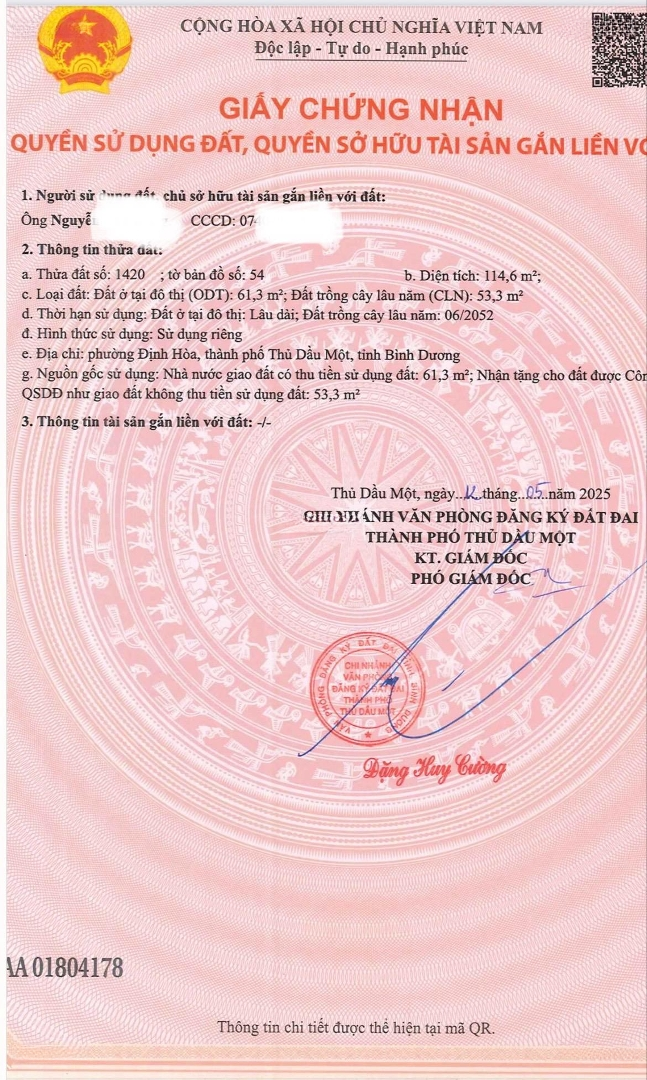 CỘNG HÒA XÃ HỘI CHỦ NGHĨA VIỆT NAM
Độc lập - Tự do - Hạnh phúc
GIẤY CHỨNG NHẬN
QUYỀN SỬ DỤNG ĐẤT, QUYỀN SỞ HỮU TÀI SẢN GẮN LIỀN VỚ
1. Người sử dụng đất, chủ sở hữu tài sản gắn liền với đất:
Ông Nguyễ CCCD: 07
2. Thông tin thửa đất:
a. Thửa đất số: 1420 ; tờ bản đồ số: 54 b. Diện tích: 114,6 m²;
c. Loại đất: Đất ở tại đô thị (ODT): 61,3 m²; Đất trồng cây lâu năm (CLN): 53,3 m²
d. Thời hạn sử dụng: Đất ở tại đô thị: Lâu dài; Đất trồng cây lâu năm: 06/2052
đ. Hình thức sử dụng: Sử dụng riêng
e. Địa chỉ: phường Định Hòa, thành phố Thủ Dầu Một, tỉnh Bình Dương
g. Nguồn gốc sử dụng: Nhà nước giao đất có thu tiền sử dụng đất: 61,3 m²; Nhận tặng cho đất được Côn
QSDĐ như giao đất không thu tiền sử dụng đất: 53,3 m²
3. Thông tin tài sản gắn liền với đất: -/-
Thủ Dầu Một, ngày..12.tháng...05..năm 2025
CHI NHÁNH VĂN PHÒNG ĐĂNG KÝ ĐẤT ĐAI
THÀNH PHỐ THỦ DẦU MỘT
KT. GIÁM ĐỐC
PHÓ GIÁM ĐỐC
VĂN PHÒNG ĐĂNG KÝ ĐẤT ĐAI TỈNH BÌNH DƯƠNG
CHI NHÁNH
VĂN PHÒNG
ĐĂNG KÝ ĐẤT ĐAI
THÀNH PHỐ
THỦ DẦU MỘT
Đặng Huy Cường
AA 01804178
Thông tin chi tiết được thể hiện tại mã QR.